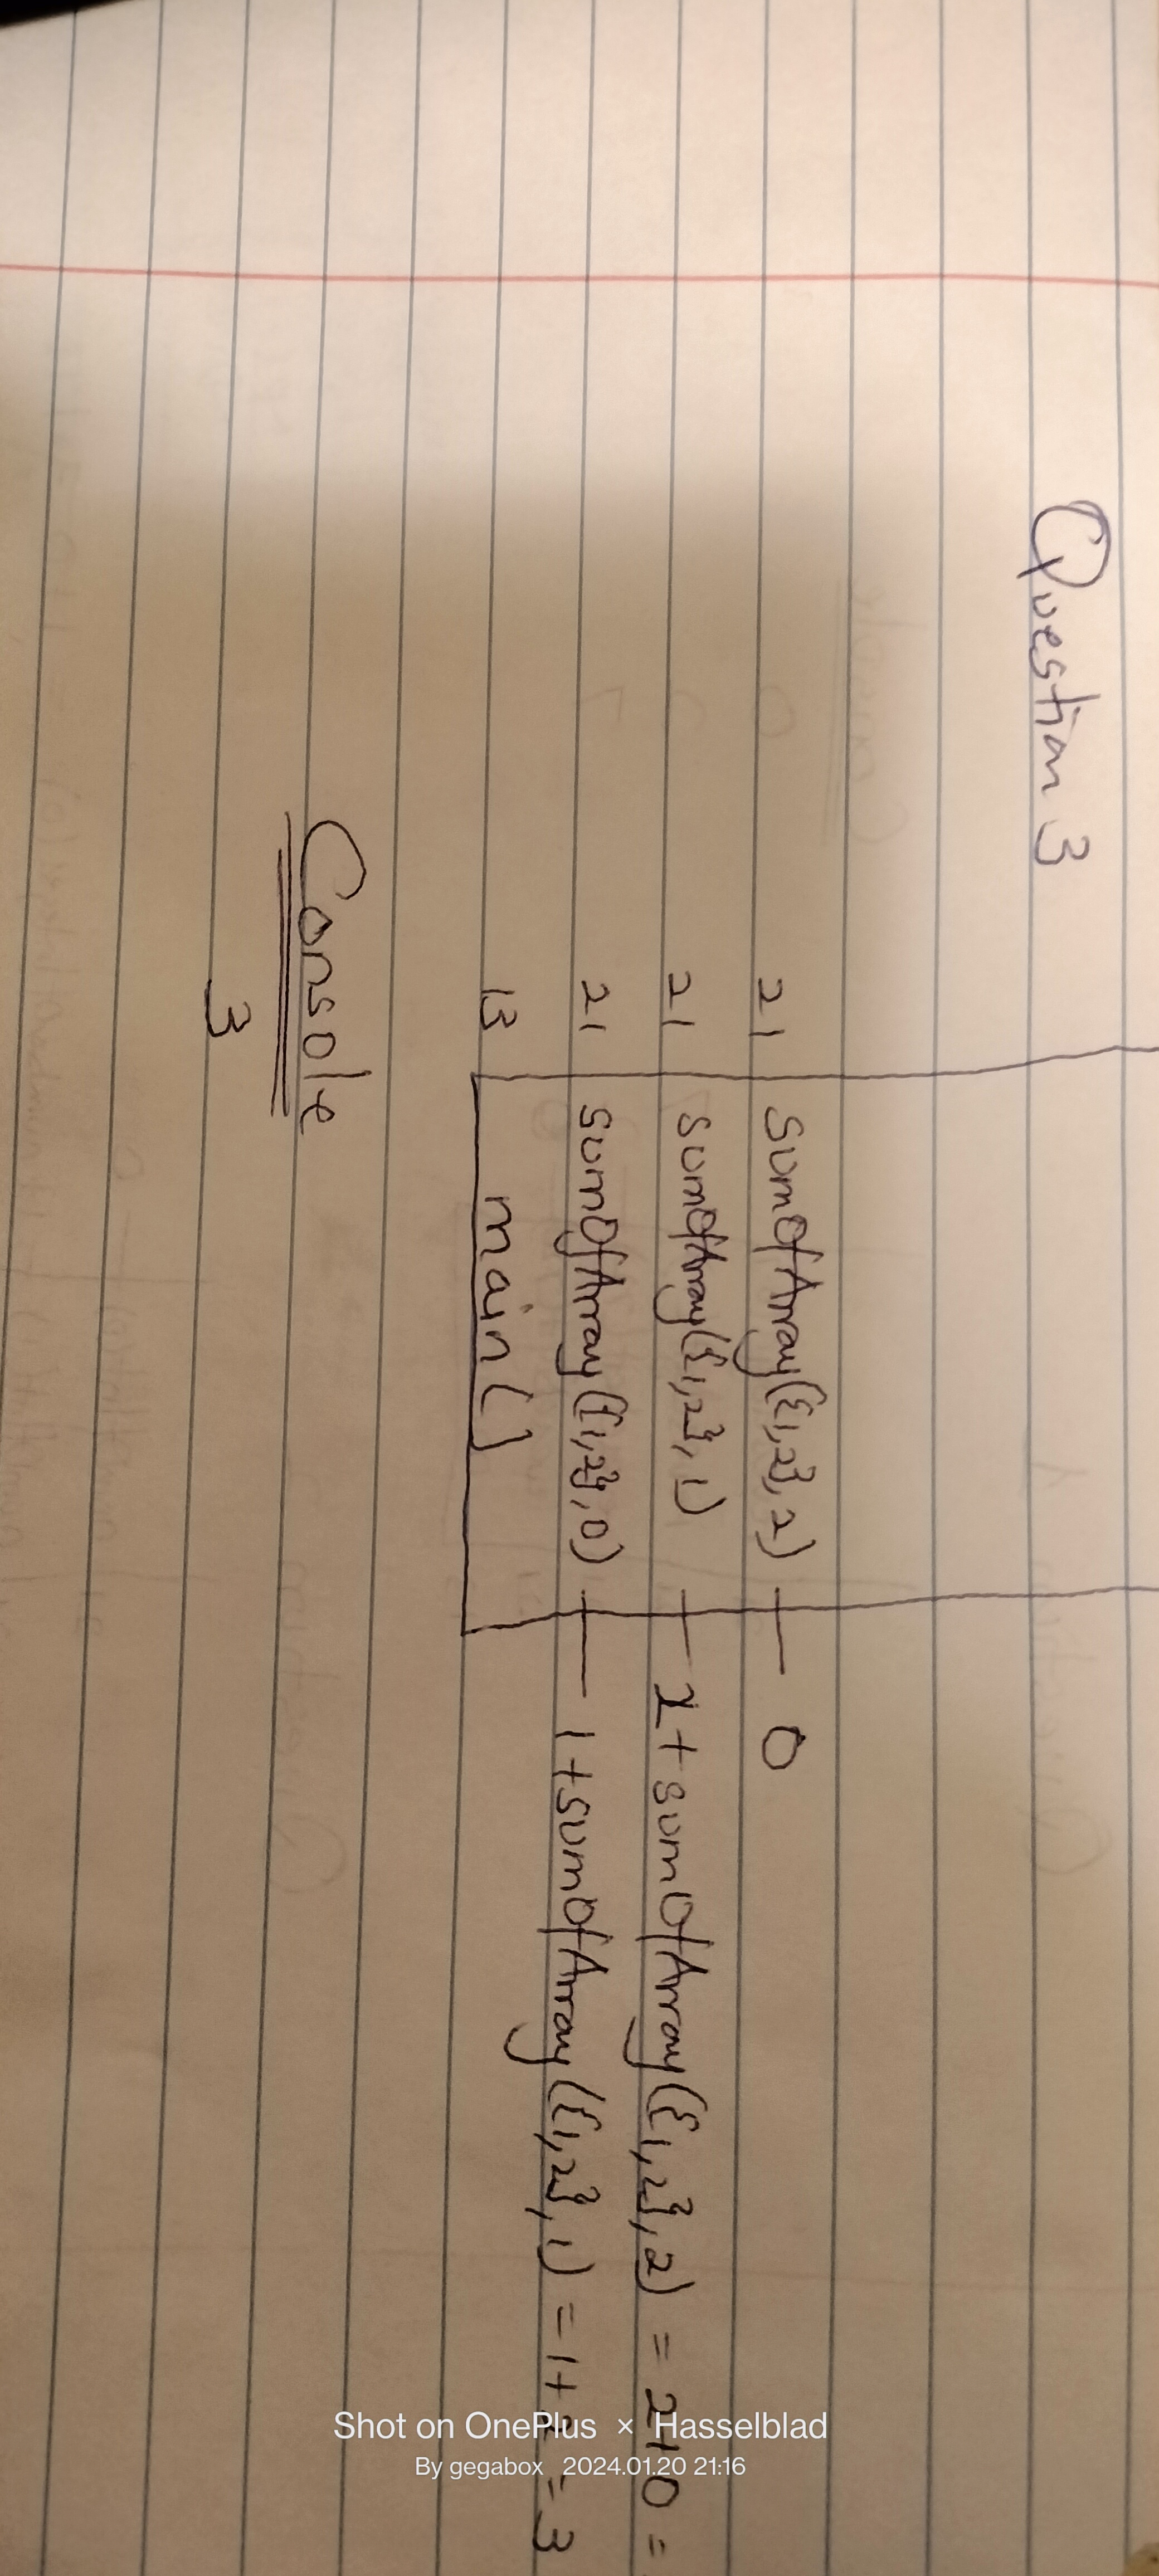 Question 3
21 sumOfArray({1,2},2) — 0
21 sumOfArray({1,2},1) — 2+sumOfArray({1,2},2) = 2+0 =
21 sumOfArray({1,2},0) — 1+sumOfArray({1,2},1) = 1+2 = 3
13 main()
Console
3
Shot on OnePlus × Hasselblad
By gegabox 2024.01.20 21:16